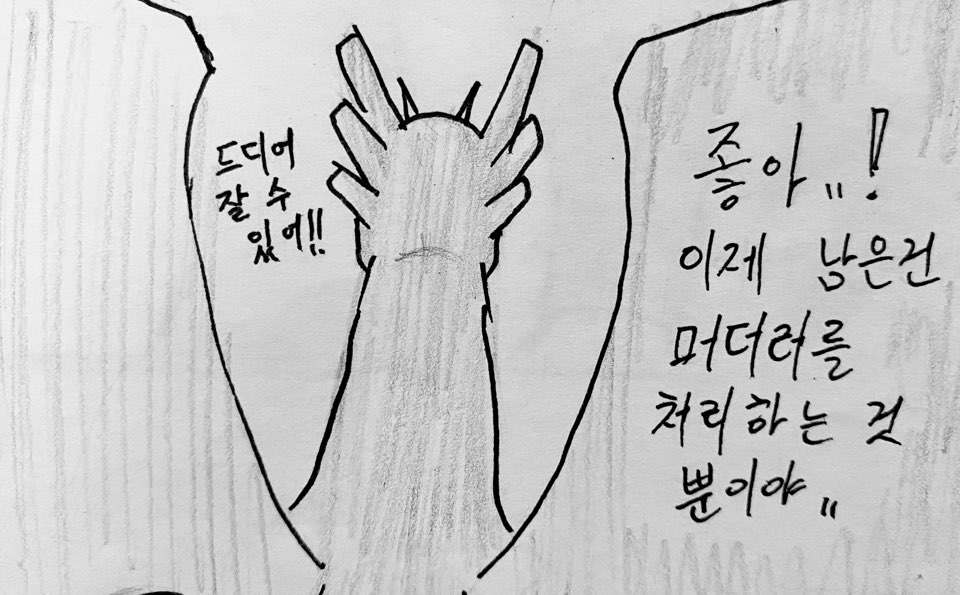 드디어
잘 수
있어!!
좋아,,!
이제 남은건
머더러를
처리하는 것
뿐이야,,